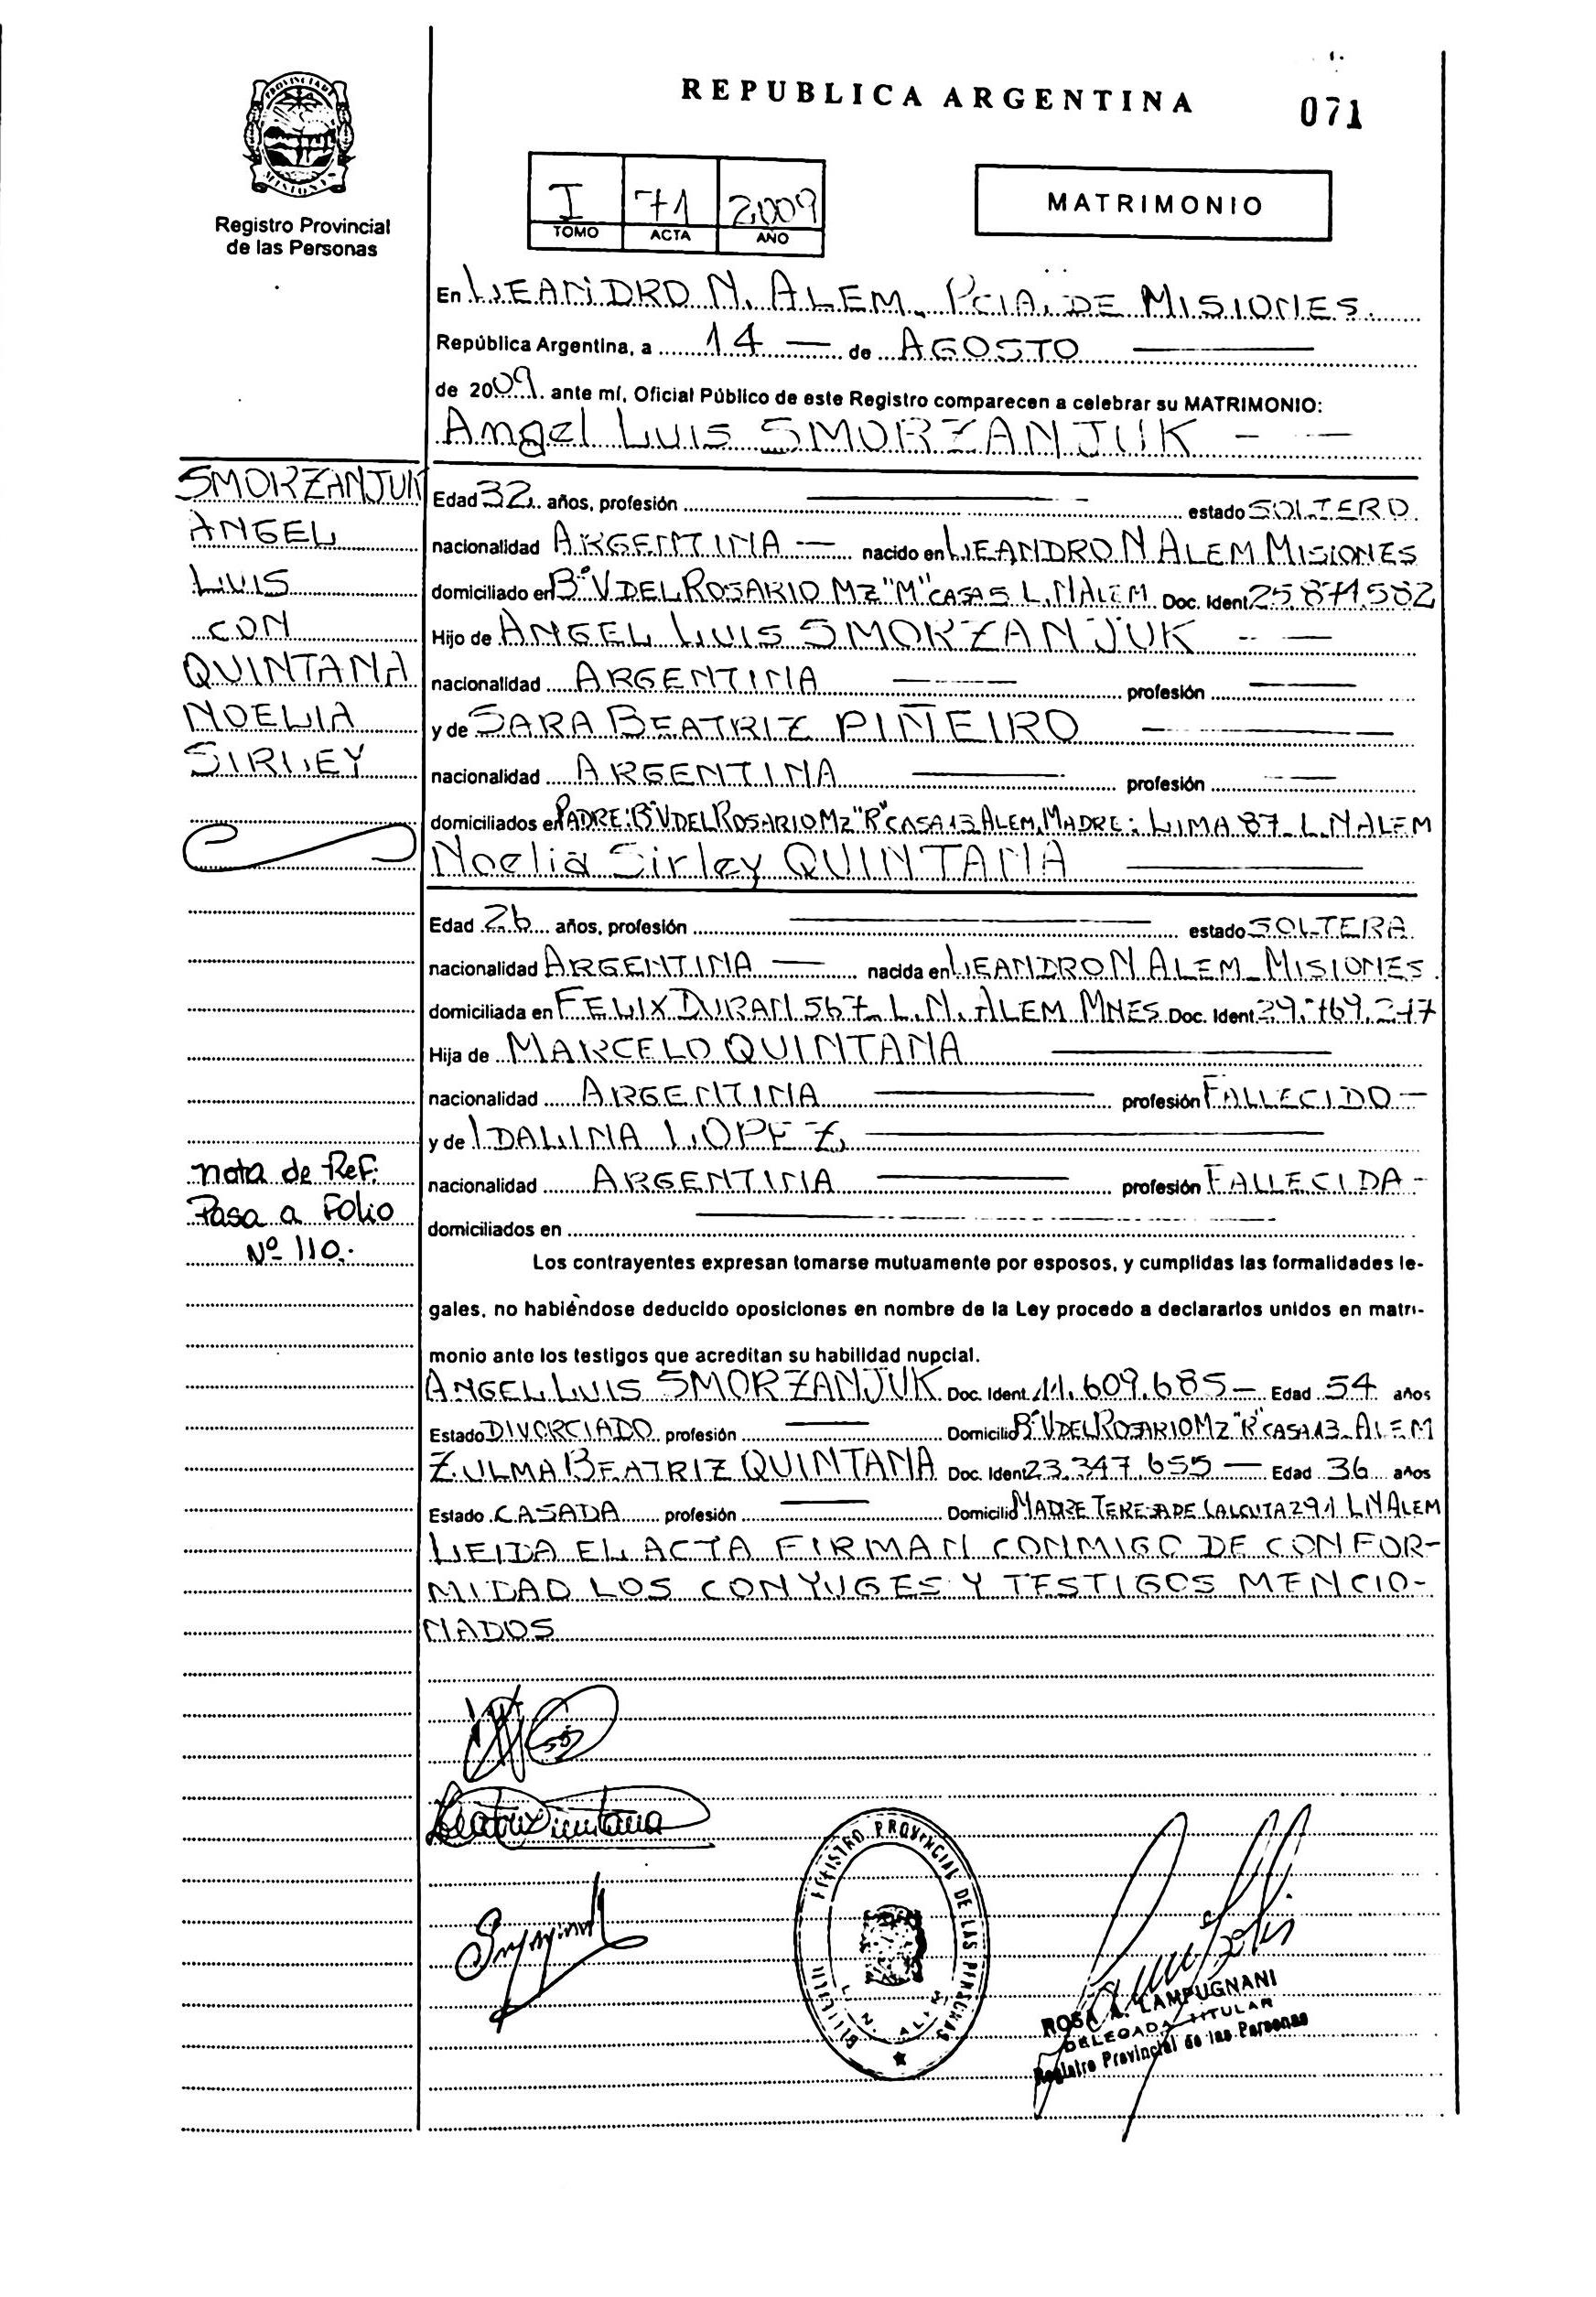 REPUBLICA ARGENTINA
071
PROVINCIA DE MISIONES
Registro Provincial
de las Personas
I 71 2009
TOMO ACTA AÑO
MATRIMONIO
En LEANDRO N. ALEM. PCIA. DE MISIONES.
República Argentina, a 14 — de AGOSTO
de 2009. ante mí, Oficial Público de este Registro comparecen a celebrar su MATRIMONIO:
Angel Luis SMORZANJUK
SMORZANJUK
ANGEL
LUIS
CON
QUINTANA
NOELIA
SIRLEY
Edad 32 años, profesión estado SOLTERO
nacionalidad ARGENTINA — nacido en LEANDRO N ALEM MISIONES
domiciliado en Bº V DEL ROSARIO MZ "M" CASA 5 L.N ALEM Doc. Ident. 25.871.502
Hijo de ANGEL LUIS SMORZANJUK
nacionalidad ARGENTINA profesión
y de SARA BEATRIZ PIÑEIRO
nacionalidad ARGENTINA profesión
domiciliados en PADRE: Bº V DEL ROSARIO MZ "R" CASA 13 ALEM. MADRE: LIMA 87 - L.N ALEM
Noelia Sirley QUINTANA
Edad 26 años, profesión estado SOLTERA
nacionalidad ARGENTINA — nacida en LEANDRO N ALEM - MISIONES
domiciliada en FELIX DURAN 567 - L.N. ALEM MNES Doc. Ident. 29.769.277
Hija de MARCELO QUINTANA
nacionalidad ARGENTINA profesión FALLECIDO —
y de IDALINA LOPEZ
nacionalidad ARGENTINA profesión FALLECIDA -
domiciliados en
nota de Ref:
Pasa a Folio
Nº 110.
Los contrayentes expresan tomarse mutuamente por esposos, y cumplidas las formalidades le-
gales, no habiéndose deducido oposiciones en nombre de la Ley procedo a declararlos unidos en matri-
monio ante los testigos que acreditan su habilidad nupcial.
ANGEL LUIS SMORZANJUK Doc. Ident. 11.609.685 — Edad 54 años
Estado DIVORCIADO profesión Domicilio Bº V DEL ROSARIO MZ "R" CASA 13 - ALEM
ZULMA BEATRIZ QUINTANA Doc. Ident. 23.347.655 — Edad 36 años
Estado CASADA profesión Domicilio MADRE TERESA DE CALCUTA 291 L N ALEM
LEIDA EL ACTA FIRMAN CONMIGO DE CONFOR-
MIDAD LOS CONYUGES Y TESTIGOS MENCIO-
NADOS
Beatriz Quintana
REGISTRO PROVINCIAL DE LAS PERSONAS
L. N. ALEM
ROSA A. LAMPUGNANI
DELEGADA TITULAR
Registro Provincial de las Personas